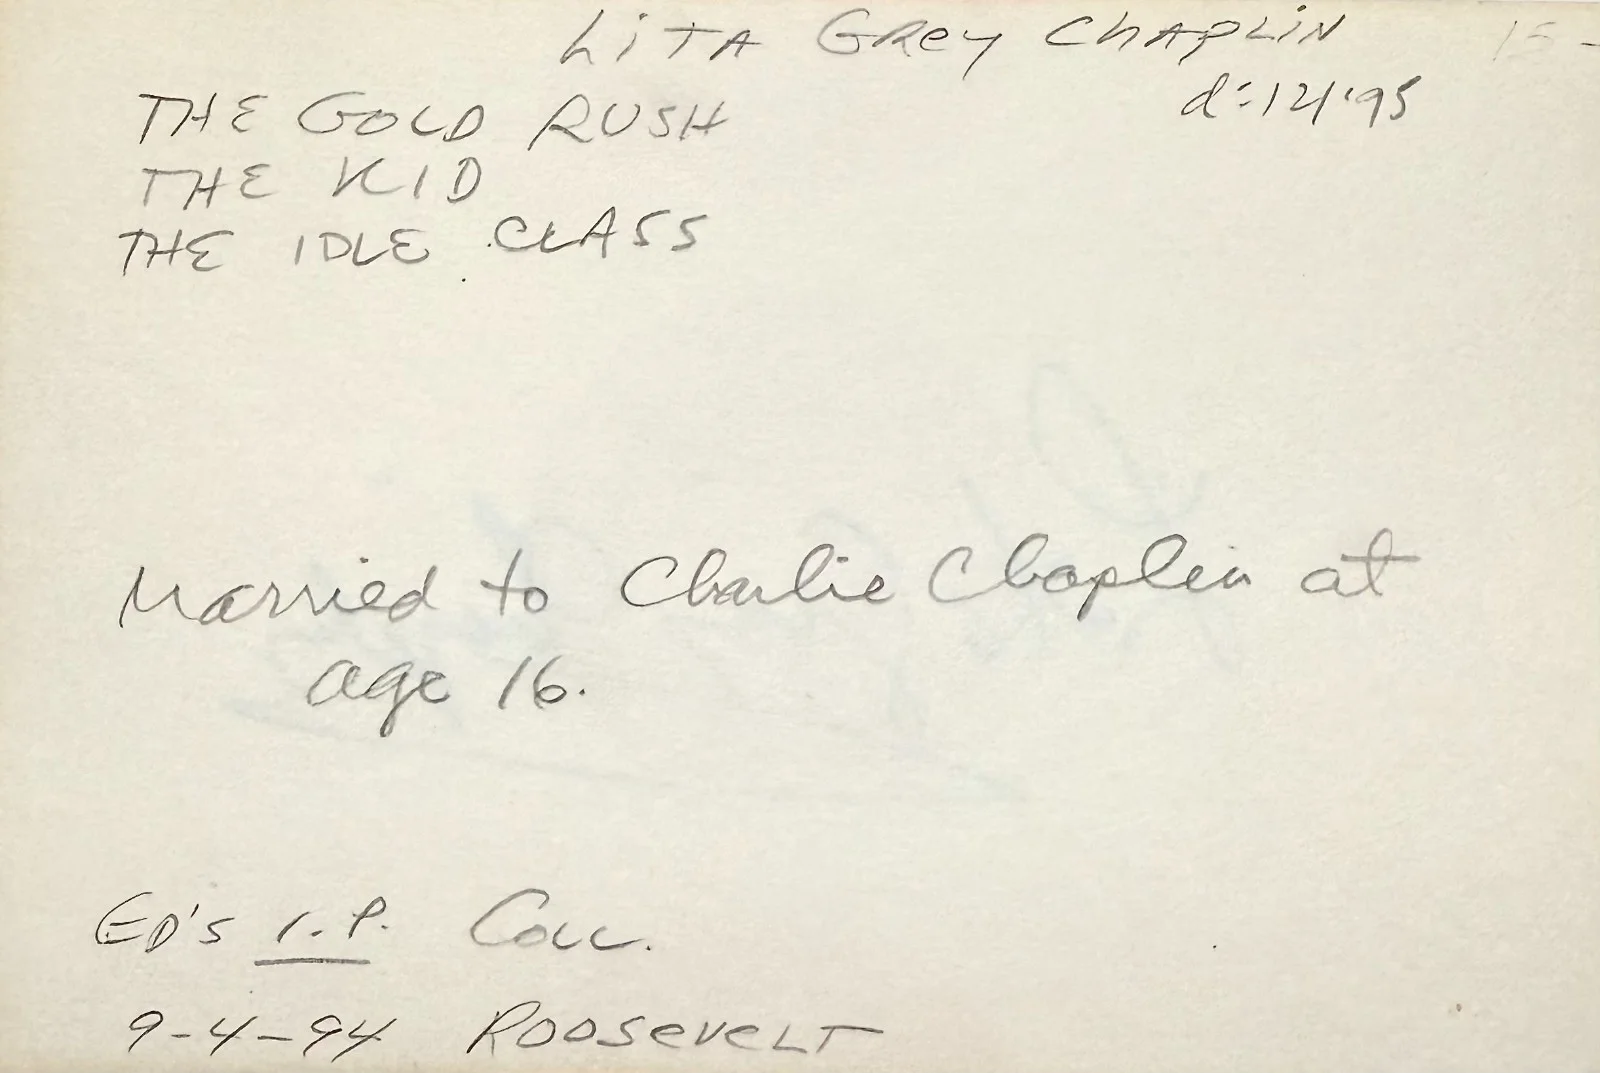 LiTA GRey ChAPLiN 15-
d:12/'95
THE GOLD RUSH
THE KID
THE IDLE CLASS
Married to Charlie Chaplin at
age 16.
ED'S I.P. COLL.
9-4-94 ROOSeveLT